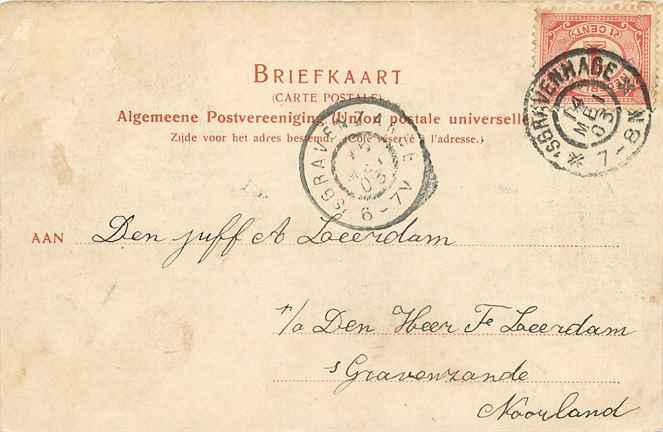 BRIEFKAART
(CARTE POSTALE)
Algemeene Postvereeniging (Union postale universelle)
Zijde voor het adres bestemd. (Côté réservé à l'adresse.)
1 CENT
'SGRAVENHAGE
14
MEI
03
7-8N
'SGRAVENZANDE
15
MEI
03
6-7V
AAN Den juff A Leerdam
p/a Den Heer Fe Leerdam
s Gravenzande
Noorland